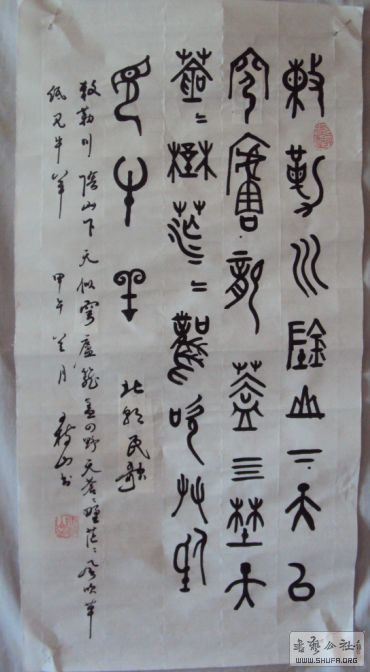 敕勒川陰山下天似
穹廬籠蓋四埜天
蒼〻野茫〻風吹草低
見牛羊
北朝民歌
敕勒川陰山下天似穹廬籠蓋四野天蒼〻野茫〻風吹草
低見牛羊 甲午 月 山书
书艺公社
WWW.SHUFA.ORG